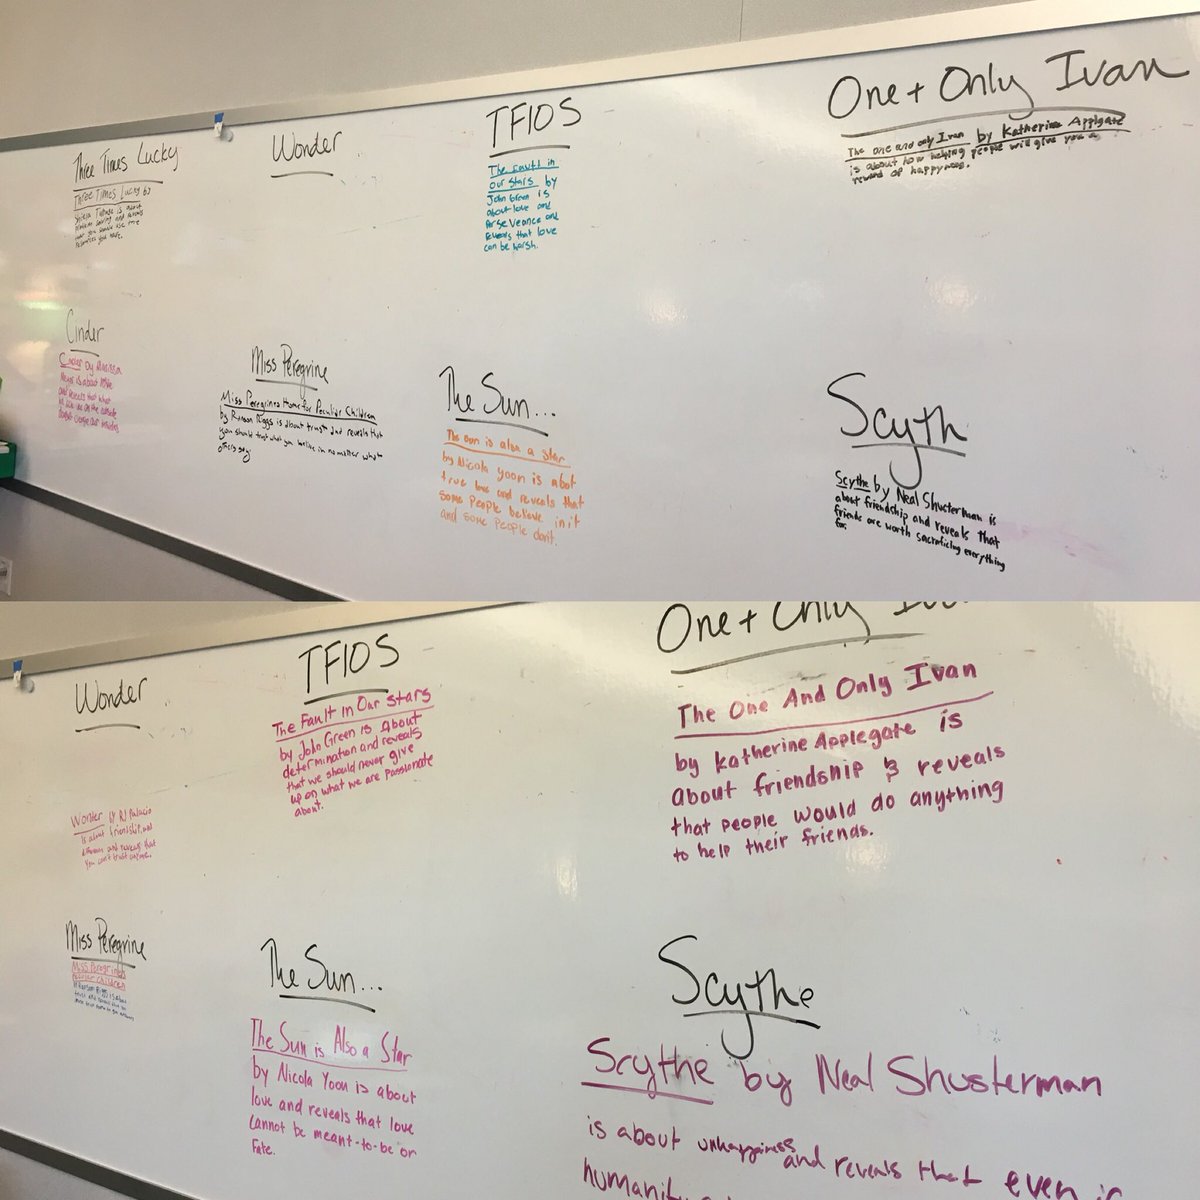 Three Times Lucky
Three Times Lucky by
Turnage is about
problem solving and
you should use time
you have.
Wonder
TFIOS
The Fault in
our Stars by
John Green is
about love and
Perseveance and
reveals that love
can be harsh.
One + Only Ivan
The one and only Ivan by Katherine Applgate
is about how helping people will give you a
reward of happyness.
Cinder
Cinder by
is about love
and reveals that what
on the outside
Miss Peregrine
Miss Peregrines Home for Peculiar Children
by Ransom Riggs is about trust and reveals that
you should trust what you believe in no matter what
others say.
The Sun...
The Sun is also a Star
by Nicola Yoon is abot
true love and reveals that
some people believe in it
and some people don't.
Scyth
Scythe by Neal Shusterman is
about friendship and reveals that
friends are worth sacraficing everything
for.
Wonder
Wonder by RJ Palacio
is about friendship and
and reveals that
you can't trust
TFIOS
The Fault In Our Stars
by John Green is About
determination and reveals
that we should never give
up on what we are passionate
about.
One + Only
The One And Only Ivan
by Katherine Applegate is
about friendship & reveals
that people would do anything
to help their friends.
Miss Peregrine
Miss Peregrines
Peculiar Children
The Sun...
The Sun is Also a Star
by Nicola Yoon is about
love and reveals that love
cannot be meant-to-be or
Fate.
Scythe
Scythe by Neal Shusterman
is about unhappiness and reveals that even in